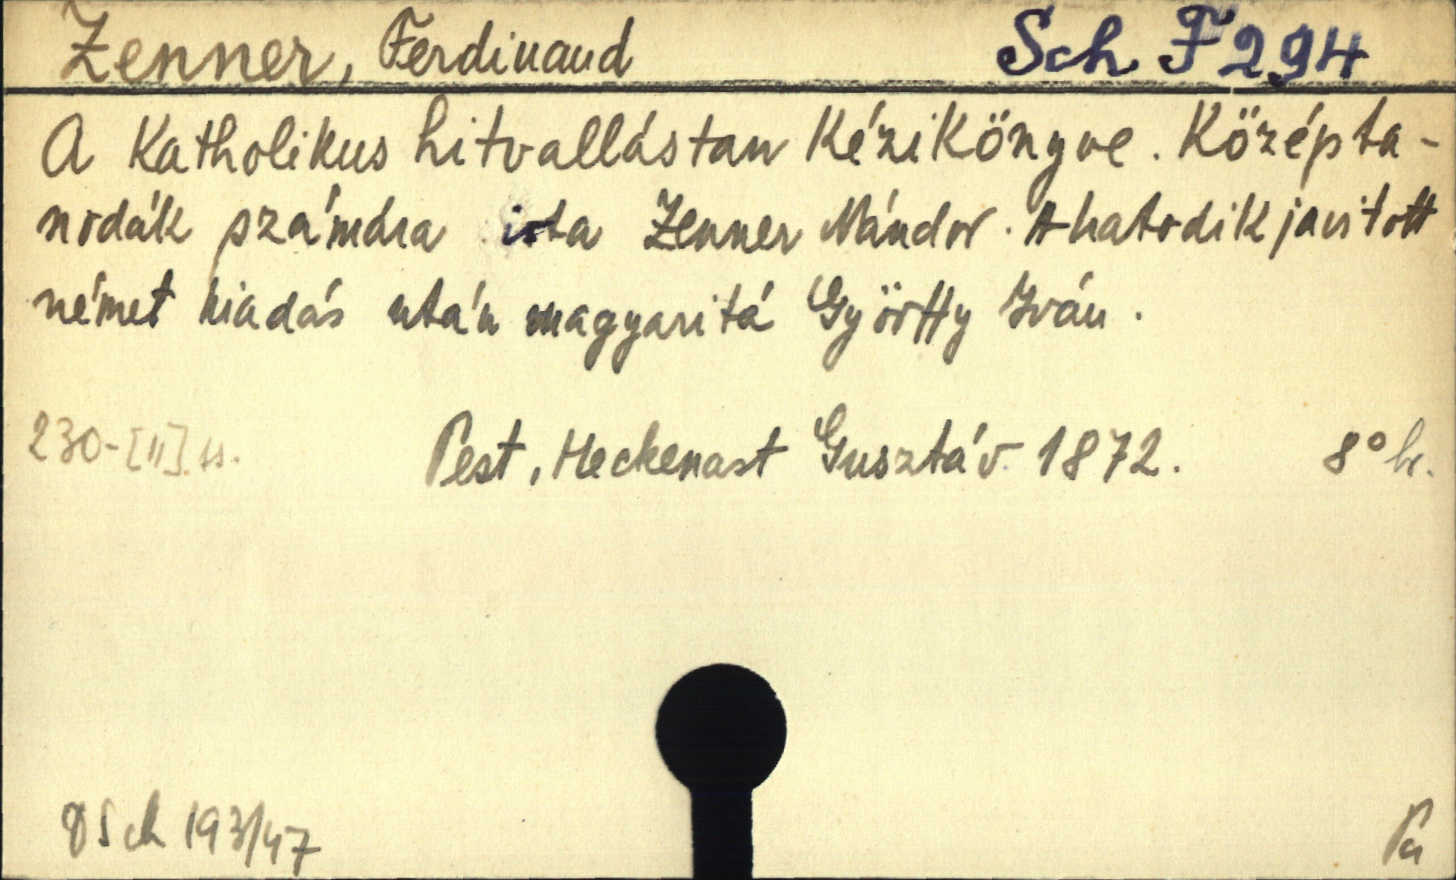 Zenner, Ferdinand Sch F 294
A Katholikus hitvallástan Kézikönyve. Középta-
nodák számára irta Zenner Nándor. A hatodik javitott
német kiadás után magyaritá Györffy Iván.
230-[II] s. Pest, Heckenast Gusztáv 1872. 8°
Sch 193/47